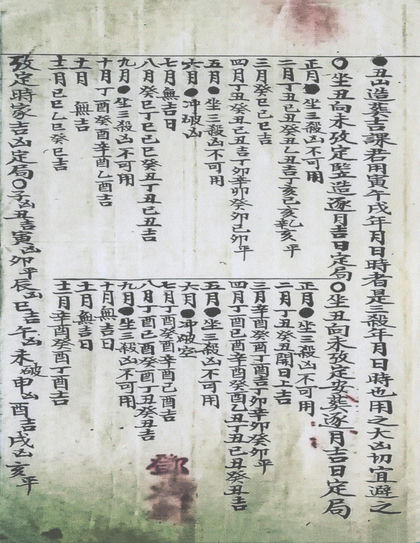 ●丑山造葬吉課若用寅午戌年月日時者是三殺年月日時也用之大凶切宜避之
○坐丑向未攷定竪造逐月吉日定局
正月●坐三殺凶不可用
二月丁丑己丑癸丑乙丑吉丁亥己亥乾亥平
三月癸巳己巳吉
四月丁丑癸丑己丑吉丁卯辛卯癸卯己卯平
五月●坐三殺凶不可用
六月●冲破山
七月無吉日
八月癸巳丁巳己巳癸丑丁丑己丑吉
九月●坐三殺凶不可用
十月丁酉癸酉辛酉乙酉吉
十一月無吉
十二月己巳乙巳癸巳吉
○坐丑向未攷定安葬逐月吉日定局
正月●坐三殺凶不可用
二月丁丑癸丑開日上吉
三月辛酉癸酉丁酉吉丁卯辛卯癸卯平
四月丁酉己酉辛酉癸酉乙丑丁丑己丑癸丑吉
五月●坐三殺凶不可用
六月●冲破空
七月丁酉癸酉辛酉己酉吉
八月丁酉己酉癸酉丁丑癸丑吉
九月●坐三殺凶不可用
十月無吉日
十一月無吉日
十二月辛酉癸酉丁酉吉
攷定時家吉凶定局○子凶丑吉寅凶卯平辰凶巳吉午凶未破申凶酉吉戌凶亥平
鄧